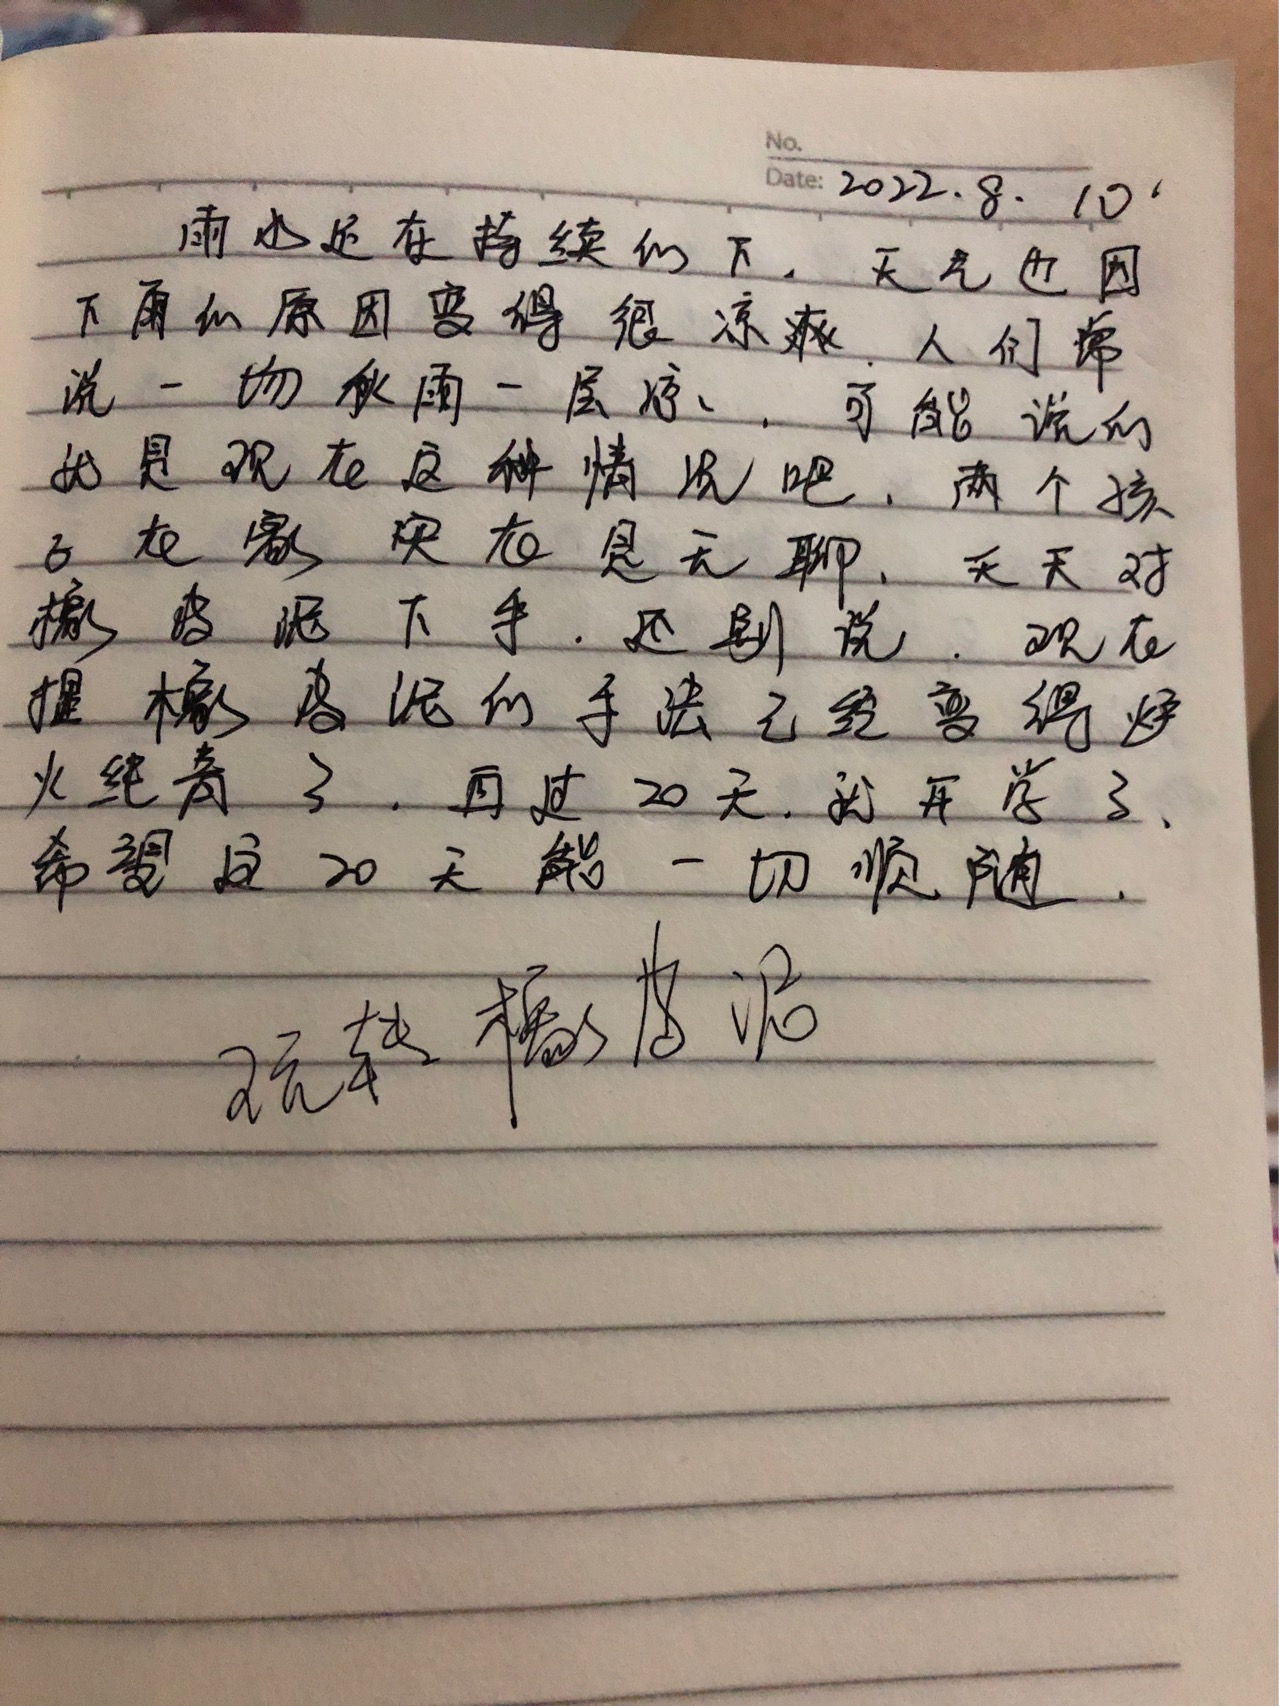 No.
Date: 2022.8.10.
雨水还在持续的下，天气也因
下雨的原因变得很凉爽，人们常
说一切秋雨一层凉，可能说的
就是现在这种情况吧，两个孩
子在家实在是无聊，天天对
橡皮泥下手，还别说，现在
捏橡皮泥的手法已经变得炉
火纯青了，再过20天，就开学了，
希望这20天能一切顺随。
玩转橡皮泥